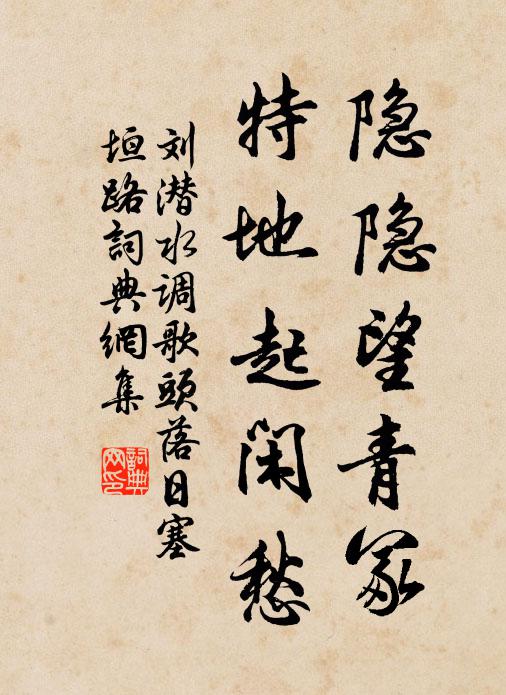 隐隐望青冢
特地起闲愁
刘潜水调歌頭落日塞
垣路詞典網集
詞典
网印